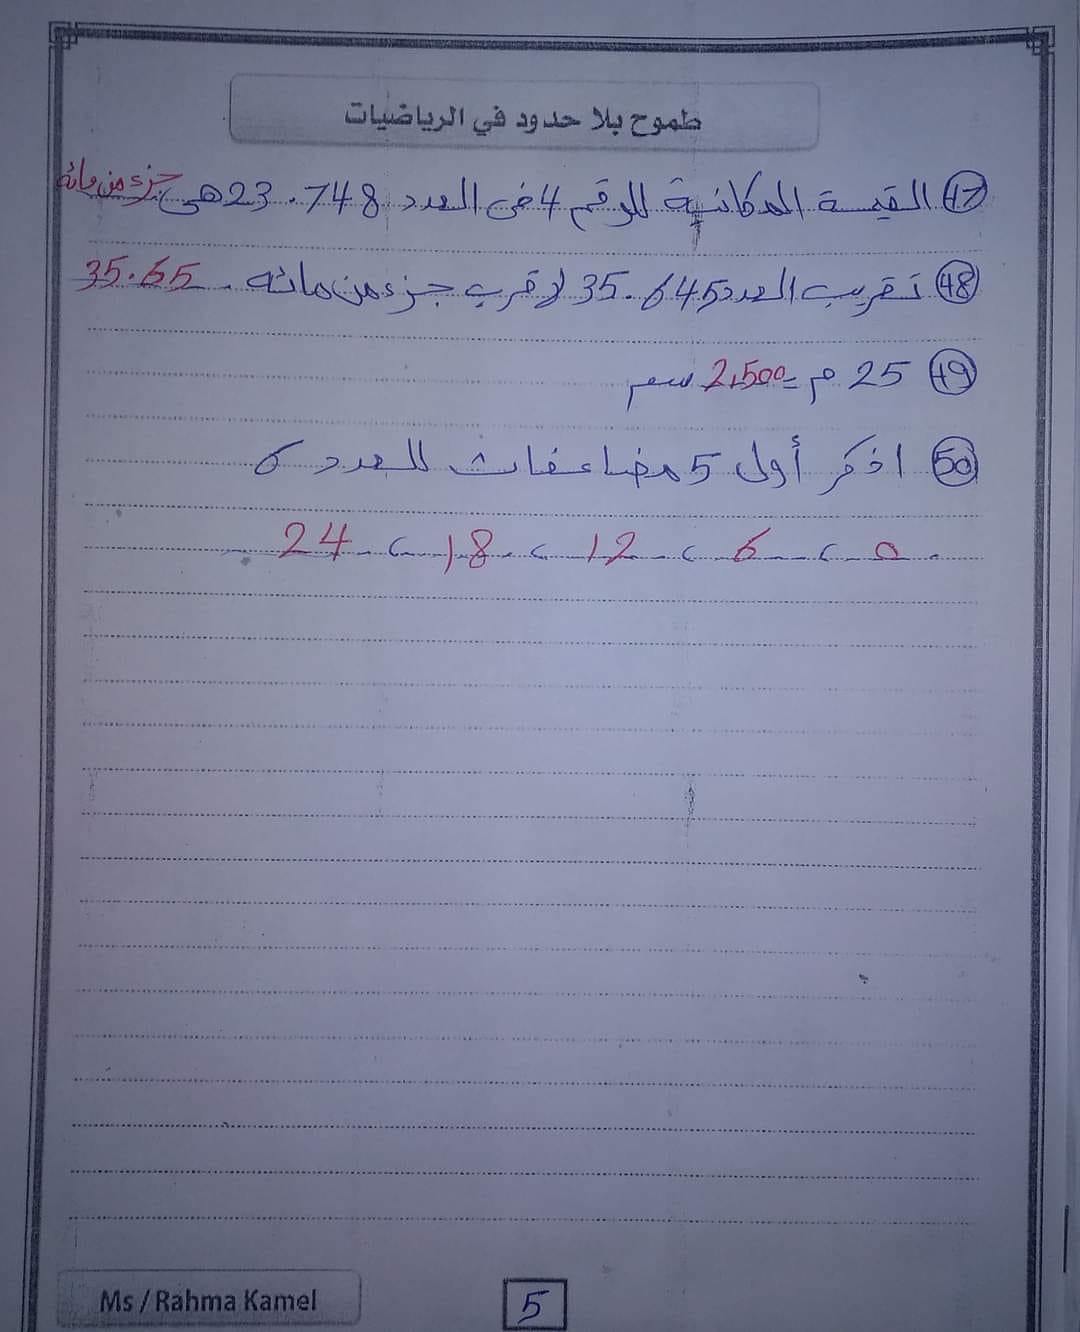 طموح بلا حدود في الرياضيات
47 القيمة المكانية للرقم 4 فى العدد 23.748 هى جزء من مائه
48 تقريب العدد 35.645 لاقرب جزء من مائه . 35.65
49 25 م = 2,500 سم
50 اذكر أول 5 مضاعفات للعدد 6
0 ، 6 ، 12 ، 18 ، 24
Ms / Rahma Kamel
5